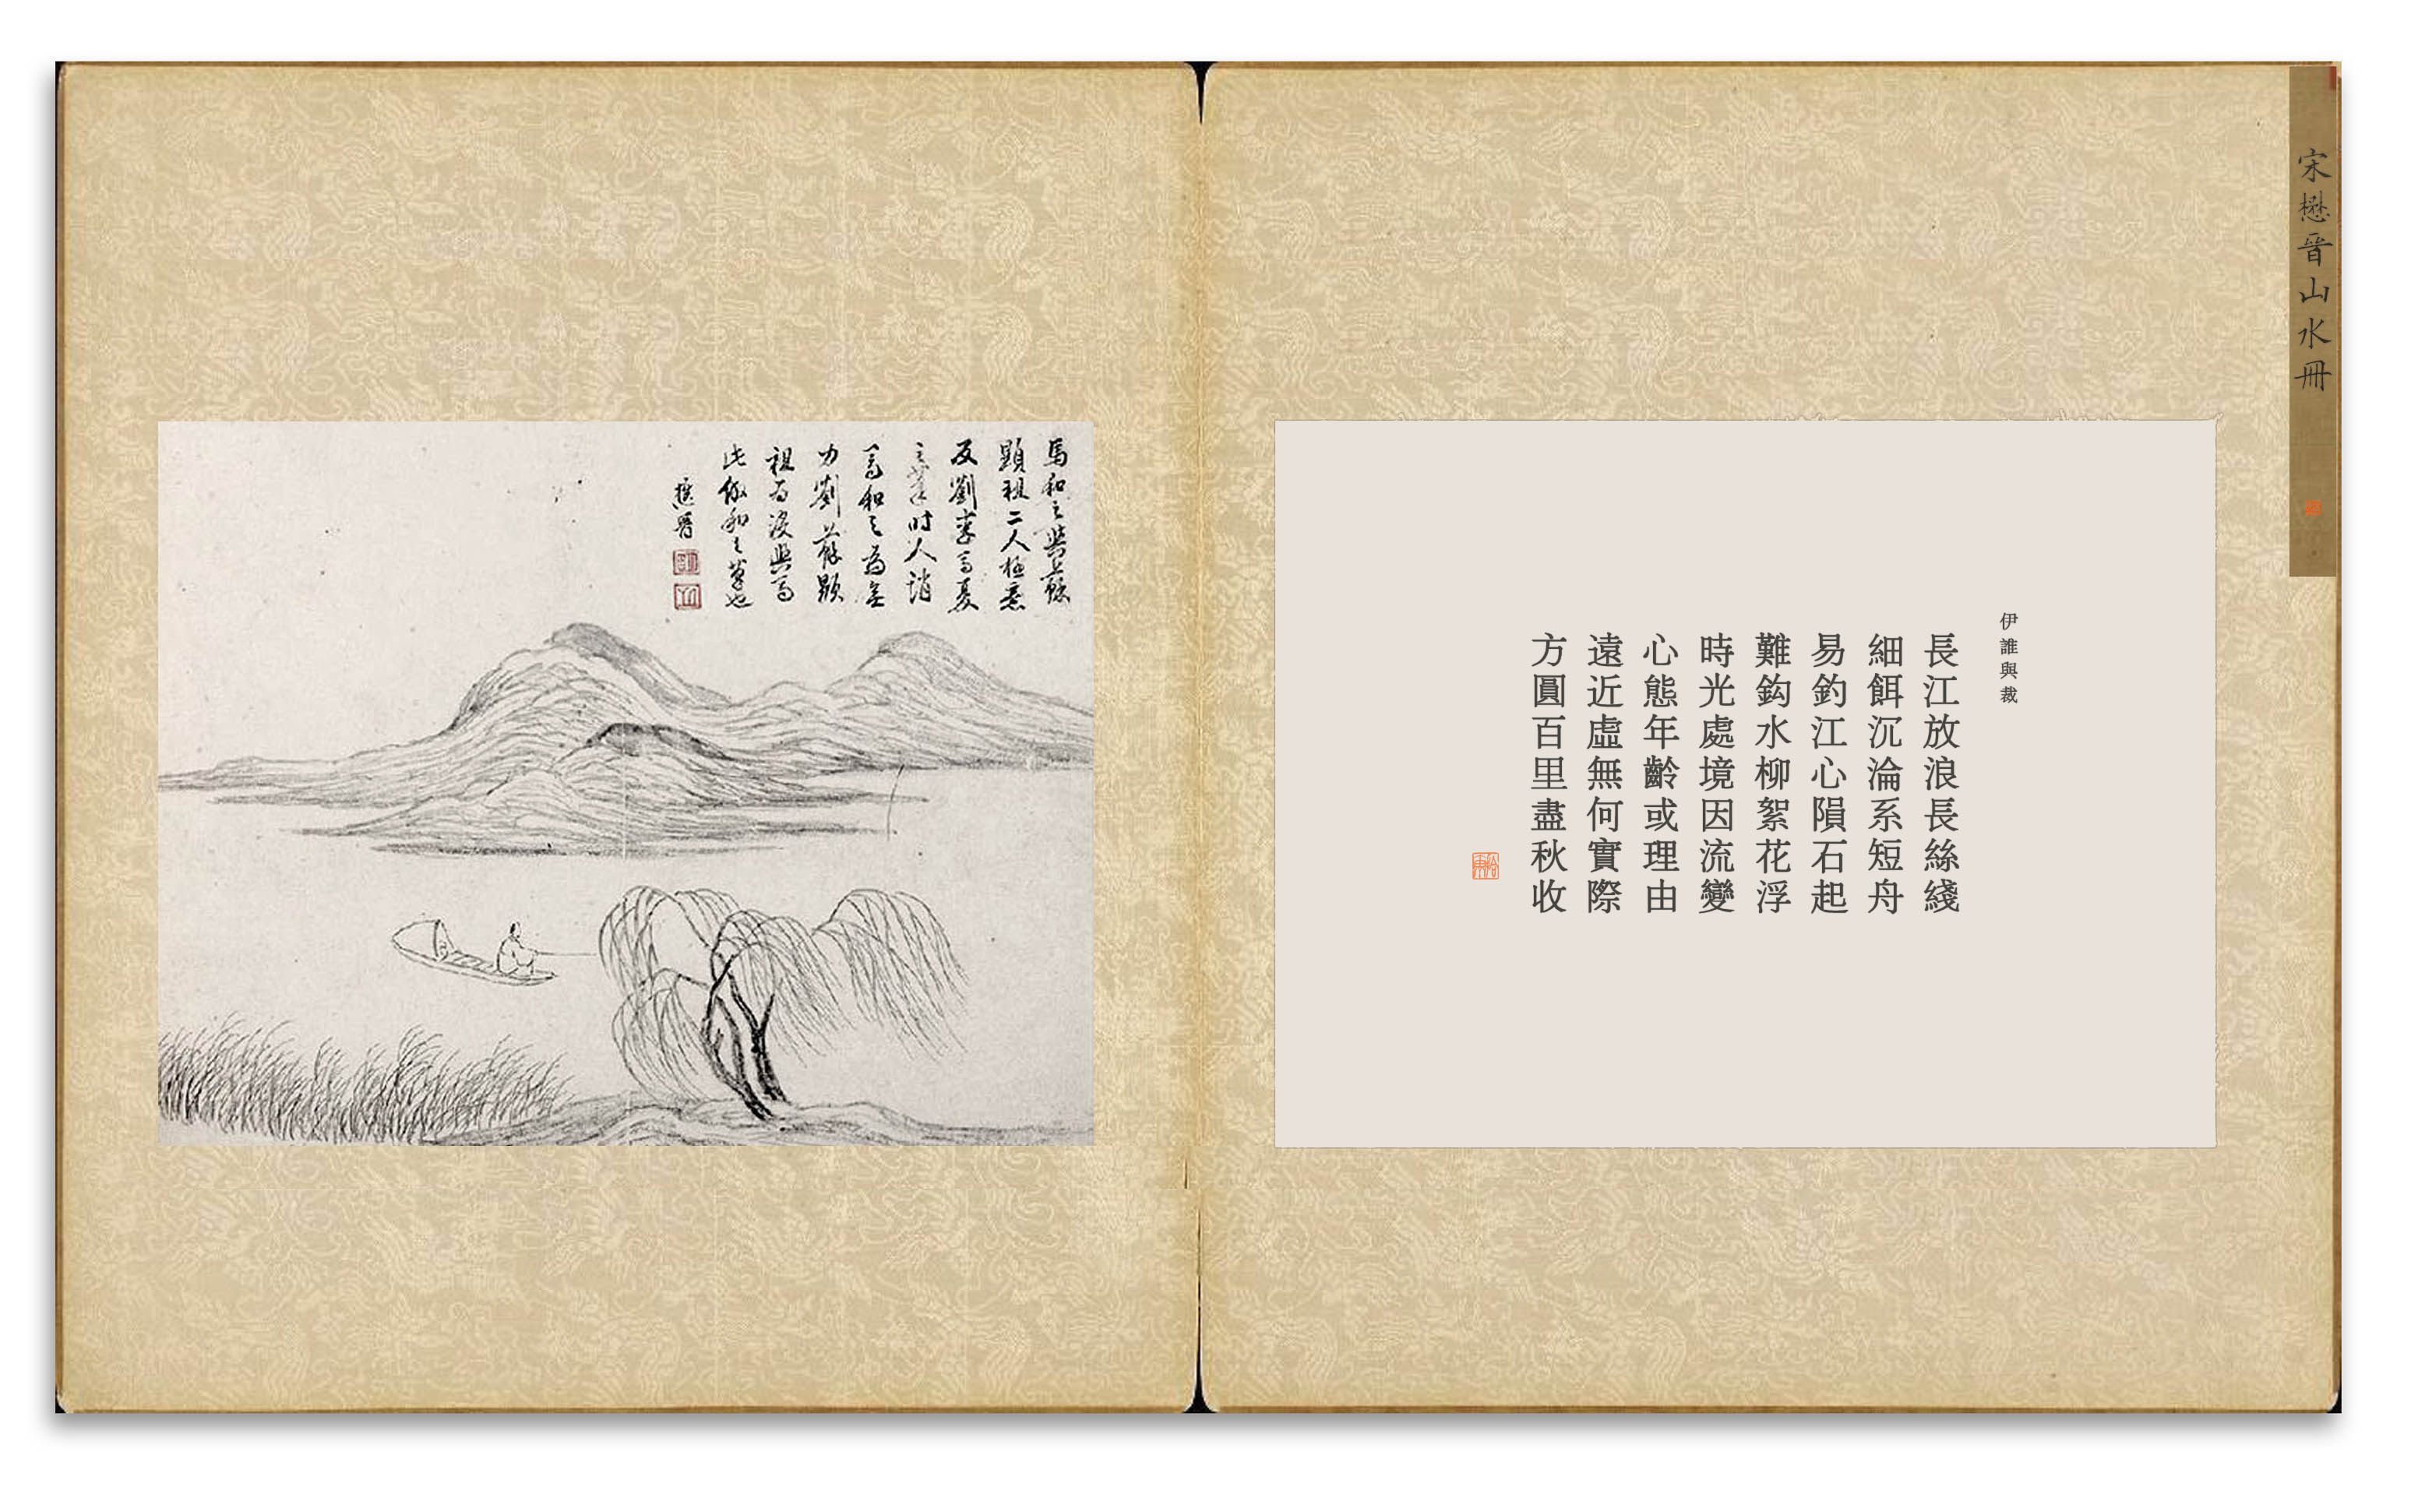 宋懋晉山水冊
伊誰與裁
長江放浪長絲綫
細餌沉淪系短舟
易釣江心隕石起
難鈎水柳絮花浮
時光處境因流變
心態年齡或理由
遠近虛無何實際
方圓百里盡秋收
馬和之與蘇
顯祖二人極意
反劉李馬夏
之筆時人誚
馬和之為無
力劉蘇顯
祖為沒興馬
此倣和之筆也
懋晉